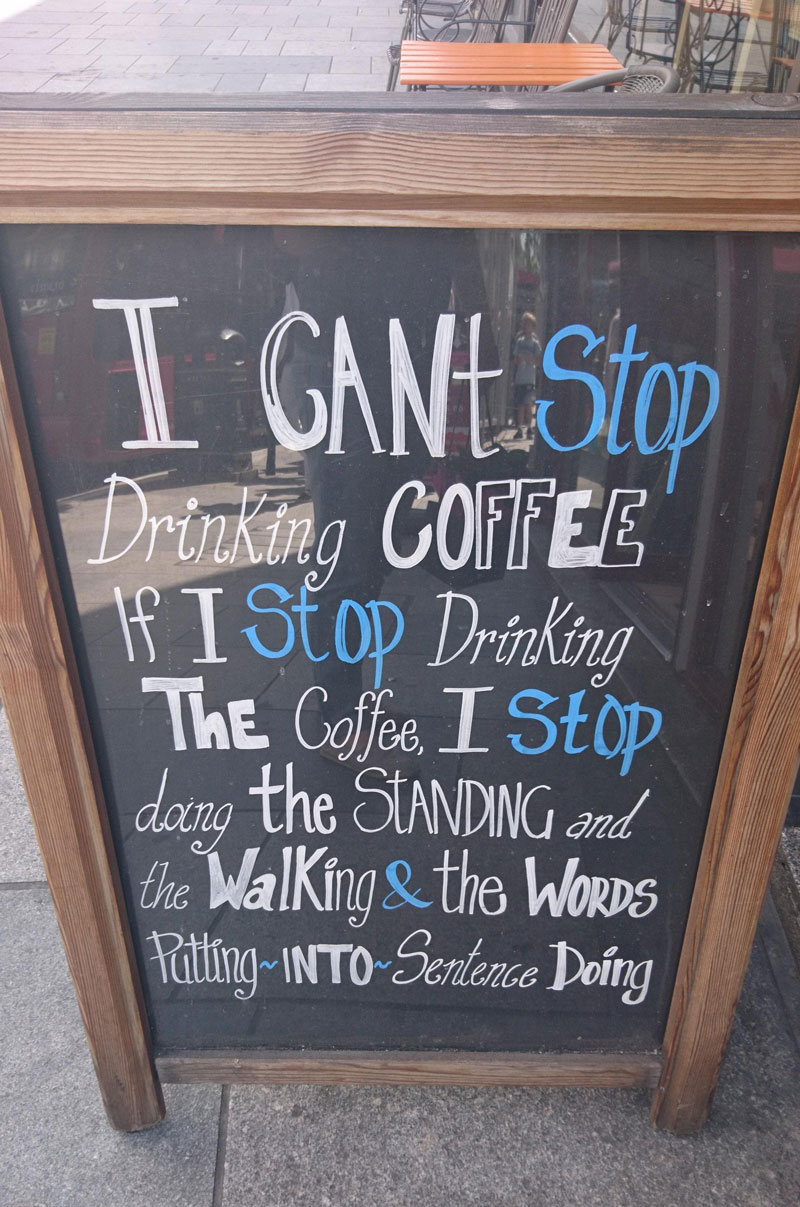 I CANt Stop
Drinking COFFEE
If I Stop Drinking
THE Coffee, I Stop
doing the STANDING and
the Walking & the WORDS
Putting~INTO~Sentence Doing